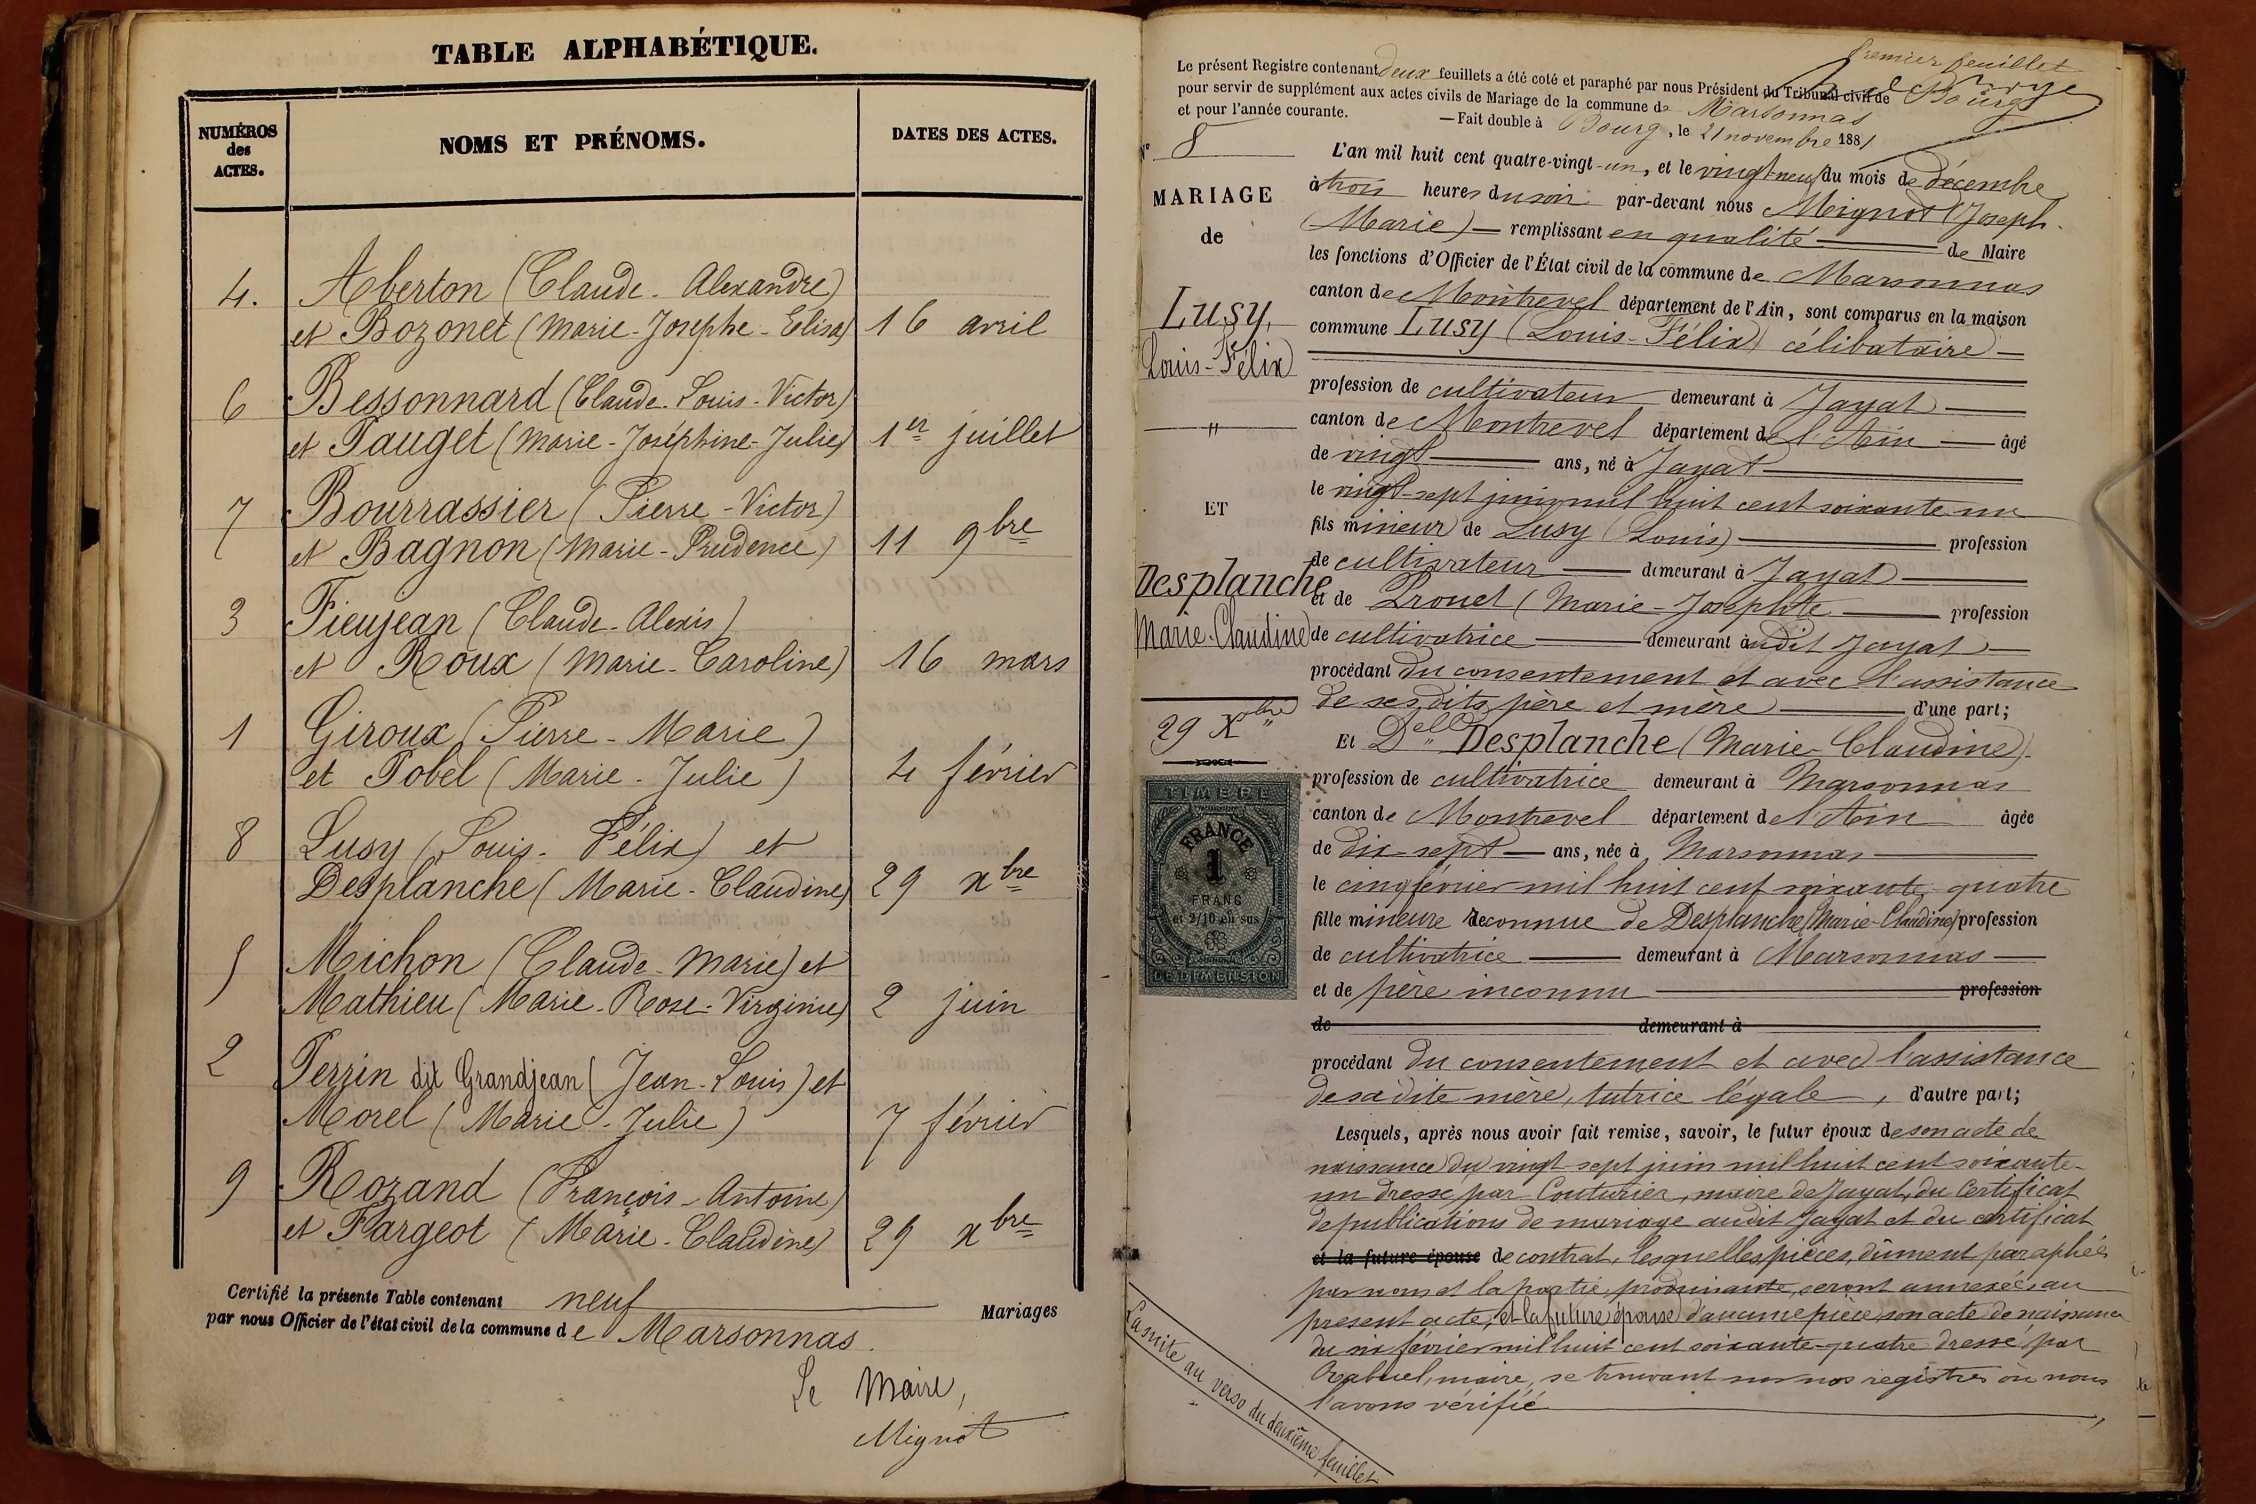 TABLE ALPHABÉTIQUE.
NUMÉROS des ACTES.
NOMS ET PRÉNOMS.
DATES DES ACTES.
4. Aberton (Claude-Alexandre)
et Bozonet (Marie-Josephe-Elisa) 16 avril
6 Bessonnard (Claude-Louis-Victor)
et Pauget (Marie-Joséphine-Julie) 1er juillet
7 Bourrassier (Pierre-Victor)
et Bagnon (Marie-Prudence) 11 9bre
3 Fieujean (Claude-Alexis)
et Roux (Marie-Caroline) 16 mars
1 Giroux (Pierre-Marie)
et Pobel (Marie-Julie) 4 février
8 Lusy (Louis-Félix) et
Desplanche (Marie-Claudine) 29 xbre
5 Michon (Claude-Marie) et
Mathieu (Marie-Rose-Virginie) 2 juin
2 Perrin dit Grandjean (Jean-Louis) et
Morel (Marie-Julie) 7 février
9 Rozand (François-Antoine)
et Fargeot (Marie-Claudine) 29 xbre
Certifié la présente Table contenant neuf Mariages
par nous Officier de l'état civil de la commune de Marsonnas.
Le Maire,
Mignot
Premier feuillet
Le présent Registre contenant deux feuillets a été coté et paraphé par nous Président du Tribunal civil de Bourg
pour servir de supplément aux actes civils de Mariage de la commune de Marsonnas
et pour l'année courante. — Fait double à Bourg, le 21 novembre 1881
N° 8
MARIAGE
de
Lusy,
Louis-Félix
"
ET
Desplanche
Marie-Claudine
29 Xbre "
TIMBRE
FRANCE
1
FRANC
et 2/10 en sus
DE DIMENSION
L'an mil huit cent quatre-vingt-un, et le vingt-neuf du mois de décembre
à trois heures du soir par-devant nous Mignot (Joseph-
Marie) — remplissant en qualité de Maire
les fonctions d'Officier de l'État civil de la commune de Marsonnas
canton de Montrevel département de l'Ain, sont comparus en la maison
commune Lusy (Louis-Félix) célibataire —
profession de cultivateur demeurant à Jayat
canton de Montrevel département de l'Ain — âgé
de vingt — ans, né à Jayat
le vingt-sept juin mil huit cent soixante un
fils mineur de Lusy (Louis) — profession
de cultivateur — demeurant à Jayat
et de Prouet (Marie-Josephte — profession
de cultivatrice — demeurant audit Jayat —
procédant du consentement et avec l'assistance
de ses dits père et mère — d'une part;
Et Delle Desplanche (Marie-Claudine)
profession de cultivatrice demeurant à Marsonnas
canton de Montrevel département de l'Ain âgée
de dix-sept — ans, née à Marsonnas
le cinq février mil huit cent soixante-quatre
fille mineure reconnue de Desplanche (Marie-Claudine) profession
de cultivatrice — demeurant à Marsonnas —
et de père inconnu — profession
de demeurant à
procédant du consentement et avec l'assistance
de sa dite mère, tutrice légale, d'autre part;
Lesquels, après nous avoir fait remise, savoir, le futur époux de son acte de
naissance du vingt-sept juin mil huit cent soixante-
un dressé par Couturier, maire de Jayat, du certificat
de publications de mariage audit Jayat et du certificat
et la future épouse de contrat, lesquelles pièces, dûment paraphées
par nous et la partie produisante, seront annexées au
présent acte, et la future épouse d'aucune pièce, son acte de naissance
du six février mil huit cent soixante-quatre dressé par
maire, se trouvant sur nos registres où nous
l'avons vérifié
La suite au verso du deuxième feuillet